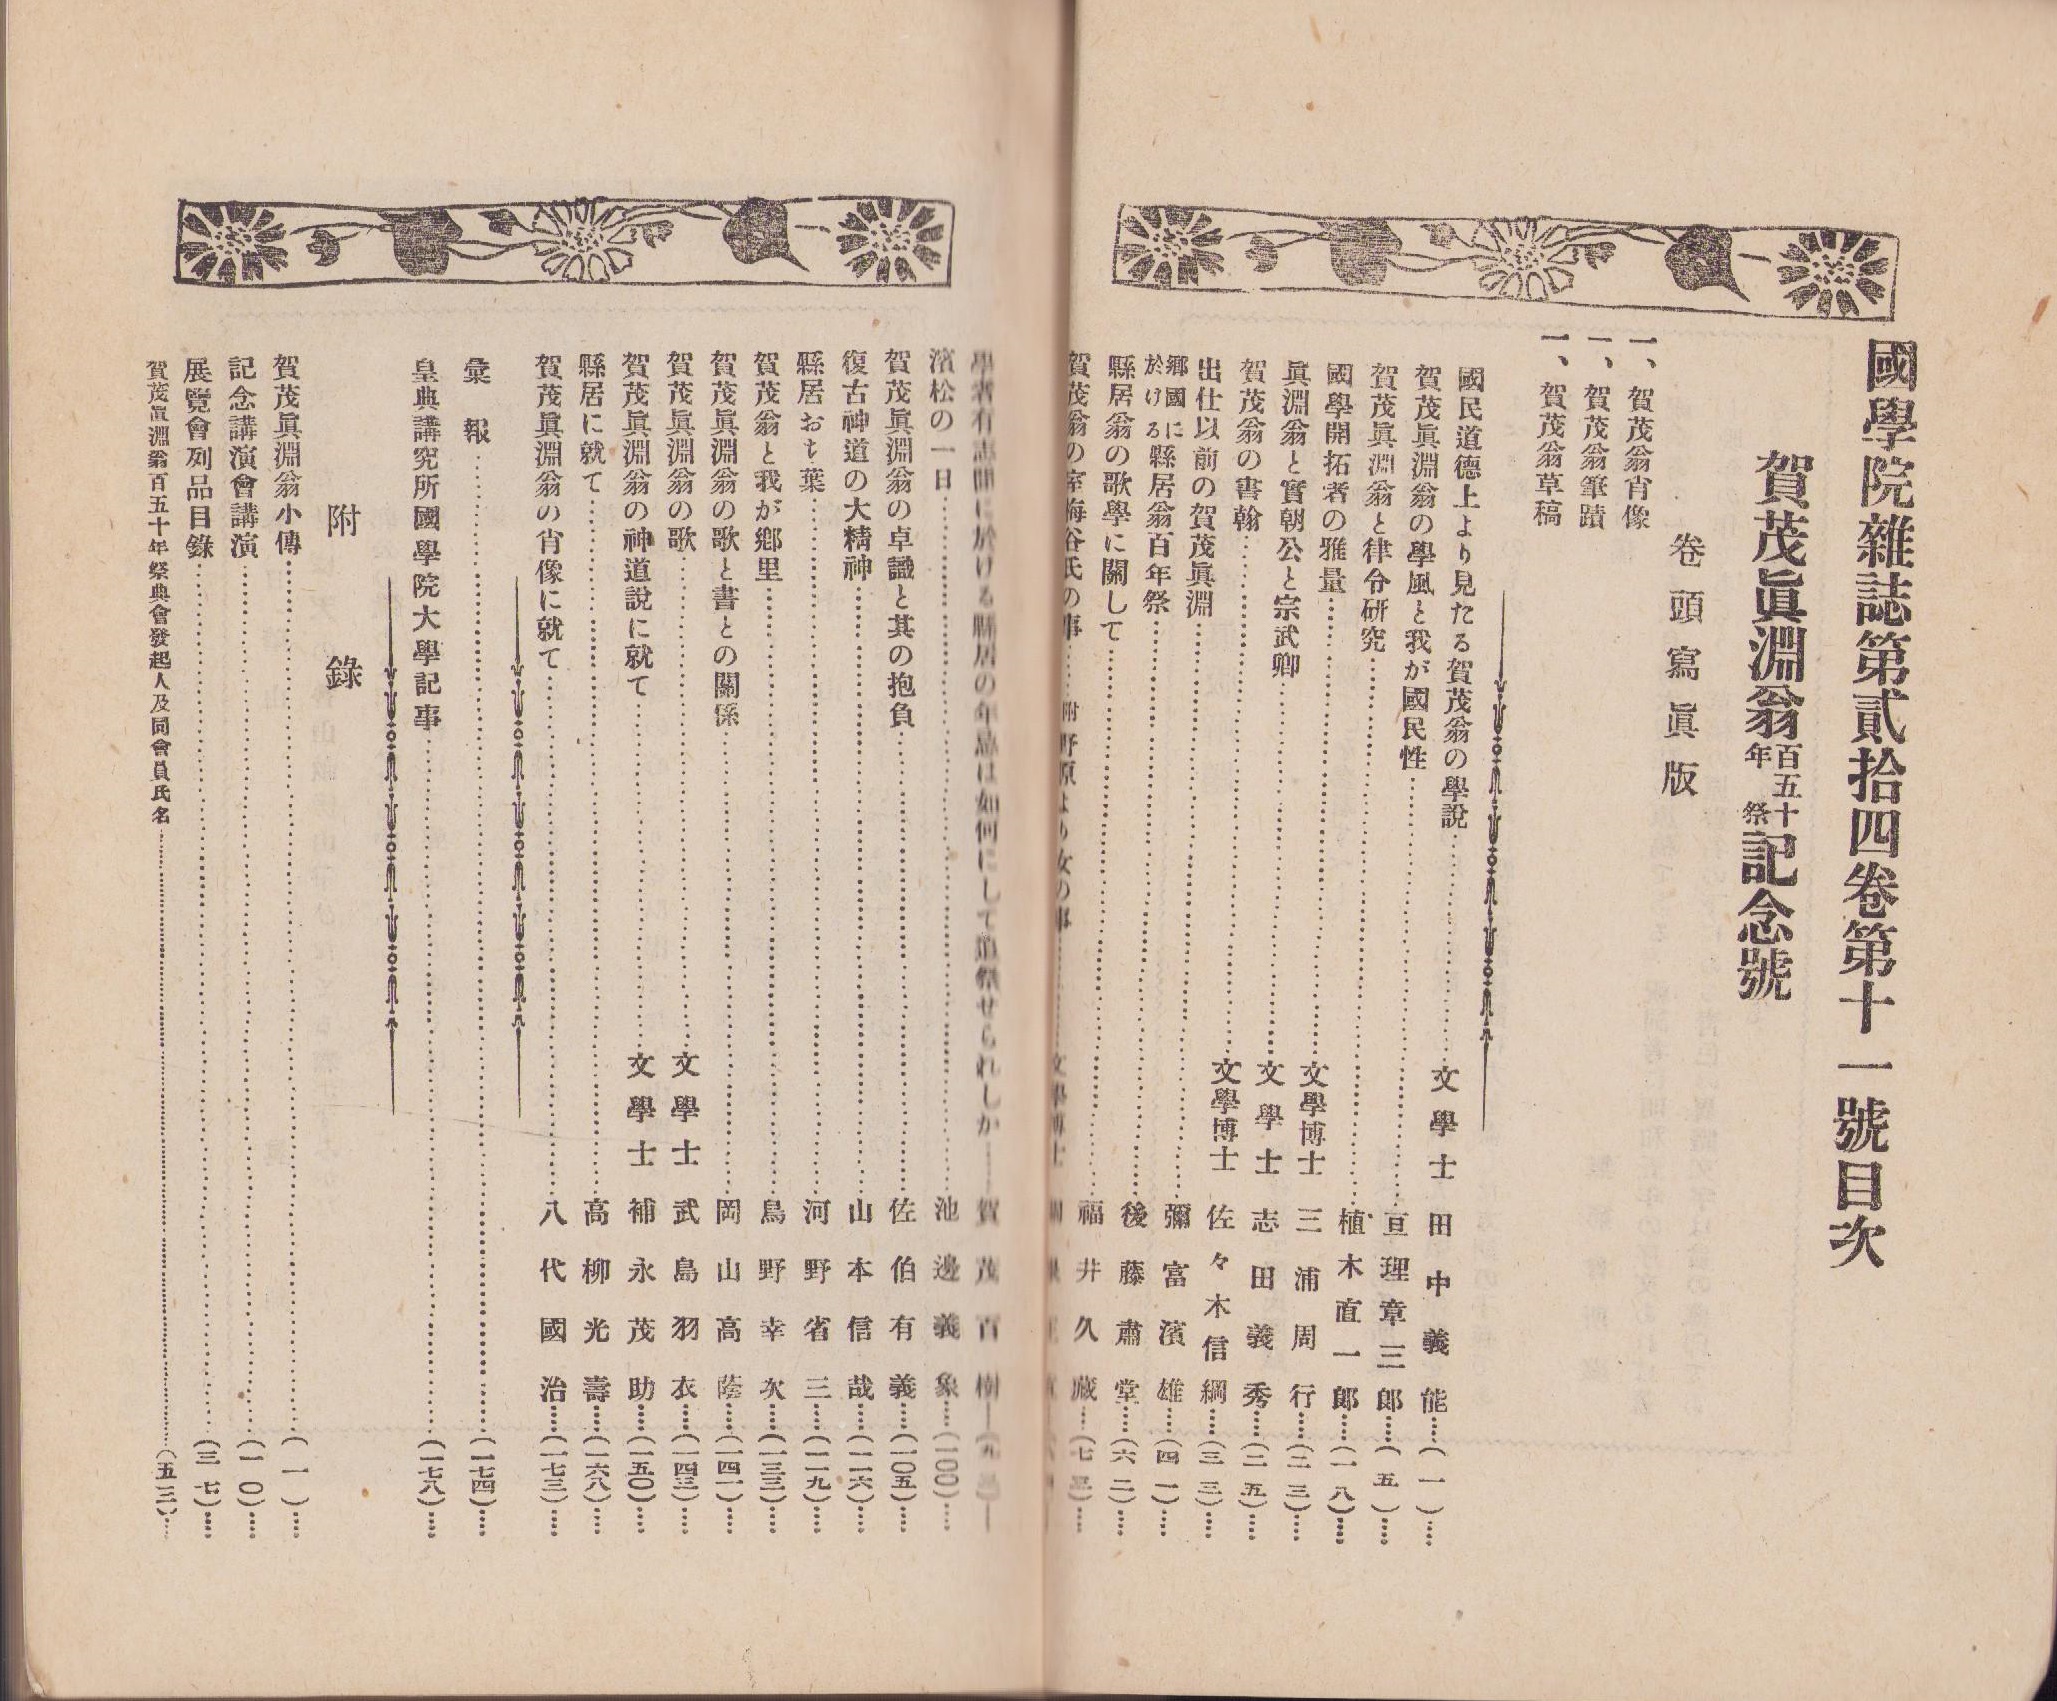 國學院雜誌第貳拾四卷第十一號目次
賀茂眞淵翁百五十年祭記念號
卷頭寫眞版
一、賀茂翁肖像
一、賀茂翁筆蹟
一、賀茂翁草稿
國民道德上より見たる賀茂翁の學說……文學士 田中義能……(一)……
賀茂眞淵翁の學風と我が國民性……亘理章三郎……(五)……
賀茂眞淵翁と律令硏究……植木直一郞……(一八)……
國學開拓者の雅量……文學博士 三浦周行……(二三)……
眞淵翁と實朝公と宗武卿……文學士 志田義秀……(二五)……
賀茂翁の書翰……文學博士 佐々木信綱……(三三)……
出仕以前の賀茂眞淵……彌富濱雄……(四一)……
鄕國に於ける縣居翁百年祭……後藤肅堂……(六二)……
縣居翁の歌學に關して……福井久藏……(七三)……
賀茂翁の室梅谷氏の事……附野原より女の事……文學博士
學者有志間に於ける縣居の年忌は如何にして追祭せられしか……賀茂百樹……
濱松の一日……池邊義象……(一〇〇)……
賀茂眞淵翁の卓識と其の抱負……佐伯有義……(一〇五)……
復古神道の大精神……山本信哉……(一一六)……
縣居おち葉……河野省三……(一一九)……
賀茂翁と我が鄕里……鳥野幸次……(一三三)……
賀茂眞淵翁の歌と書との關係……岡山高蔭……(一四一)……
賀茂眞淵翁の歌……文學士 武島羽衣……(一四三)……
賀茂眞淵翁の神道說に就て……文學士 補永茂助……(一五〇)……
縣居に就て……高柳光壽……(一六八)……
賀茂眞淵翁の肖像に就て……八代國治……(一七三)……
彙報……(一七四)……
皇典講究所國學院大學記事……(一七八)……
附錄
賀茂眞淵翁小傳……(一)……
記念講演會講演……(一〇)……
展覽會列品目錄……(三七)……
賀茂眞淵翁百五十年祭典會發起人及同會員氏名……(五三)……